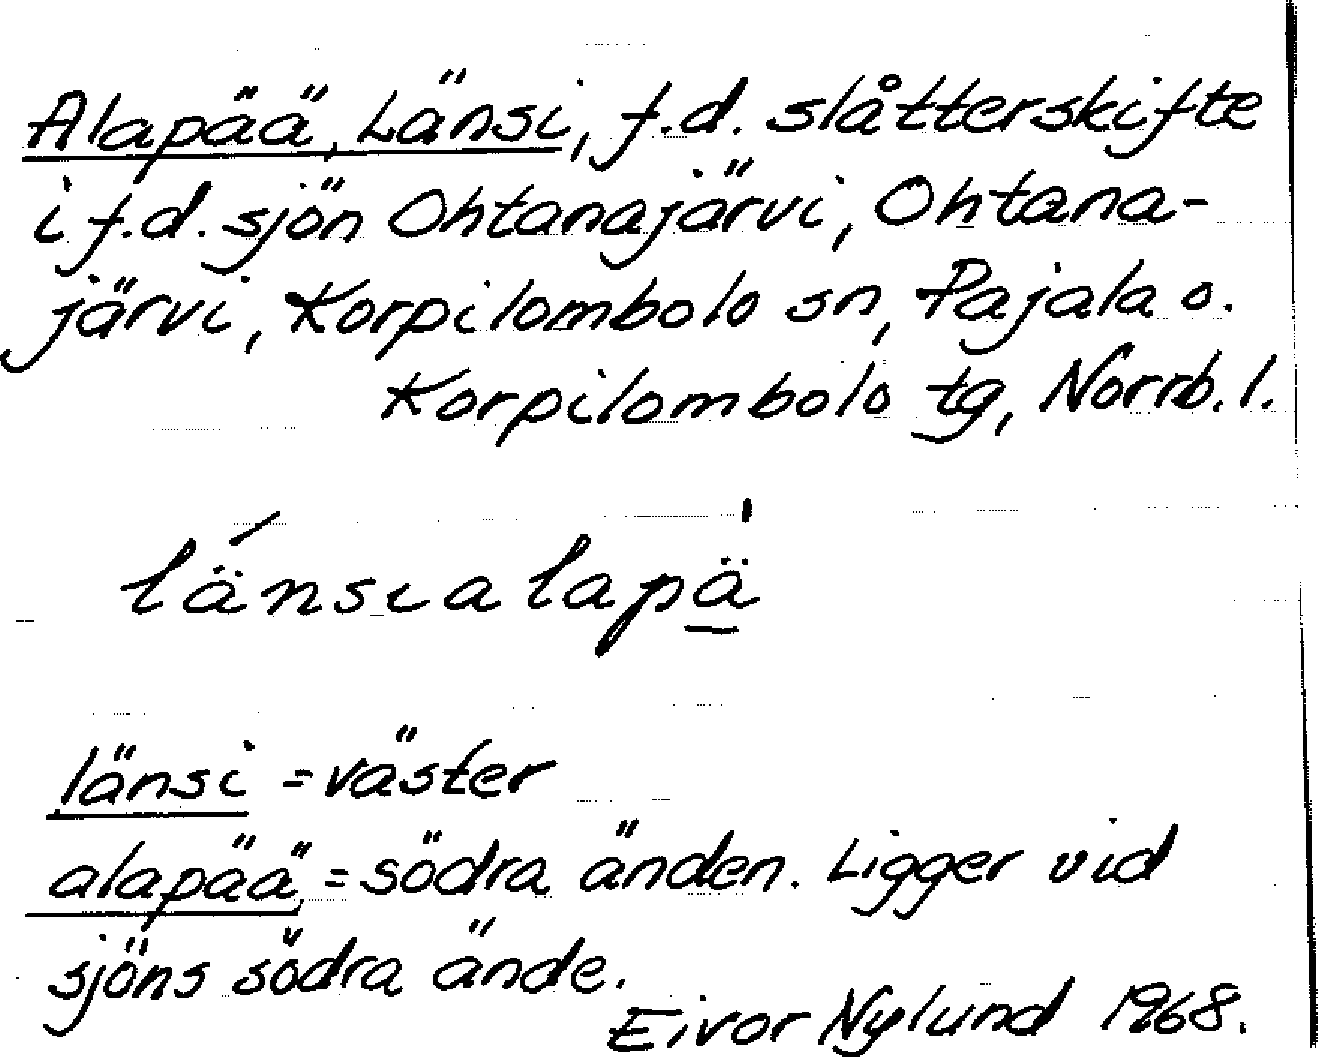 Alapää, Länsi, f.d. slåtterskifte
i f.d. sjön Ohtanajärvi, Ohtana-
järvi, Korpilombolo sn, Pajala o.
Korpilombolo tg, Norrb. l.
länsıalapä̲
länsi = väster
alapää = södra änden. Ligger vid
sjöns södra ände.
Eivor Nylund 1968.